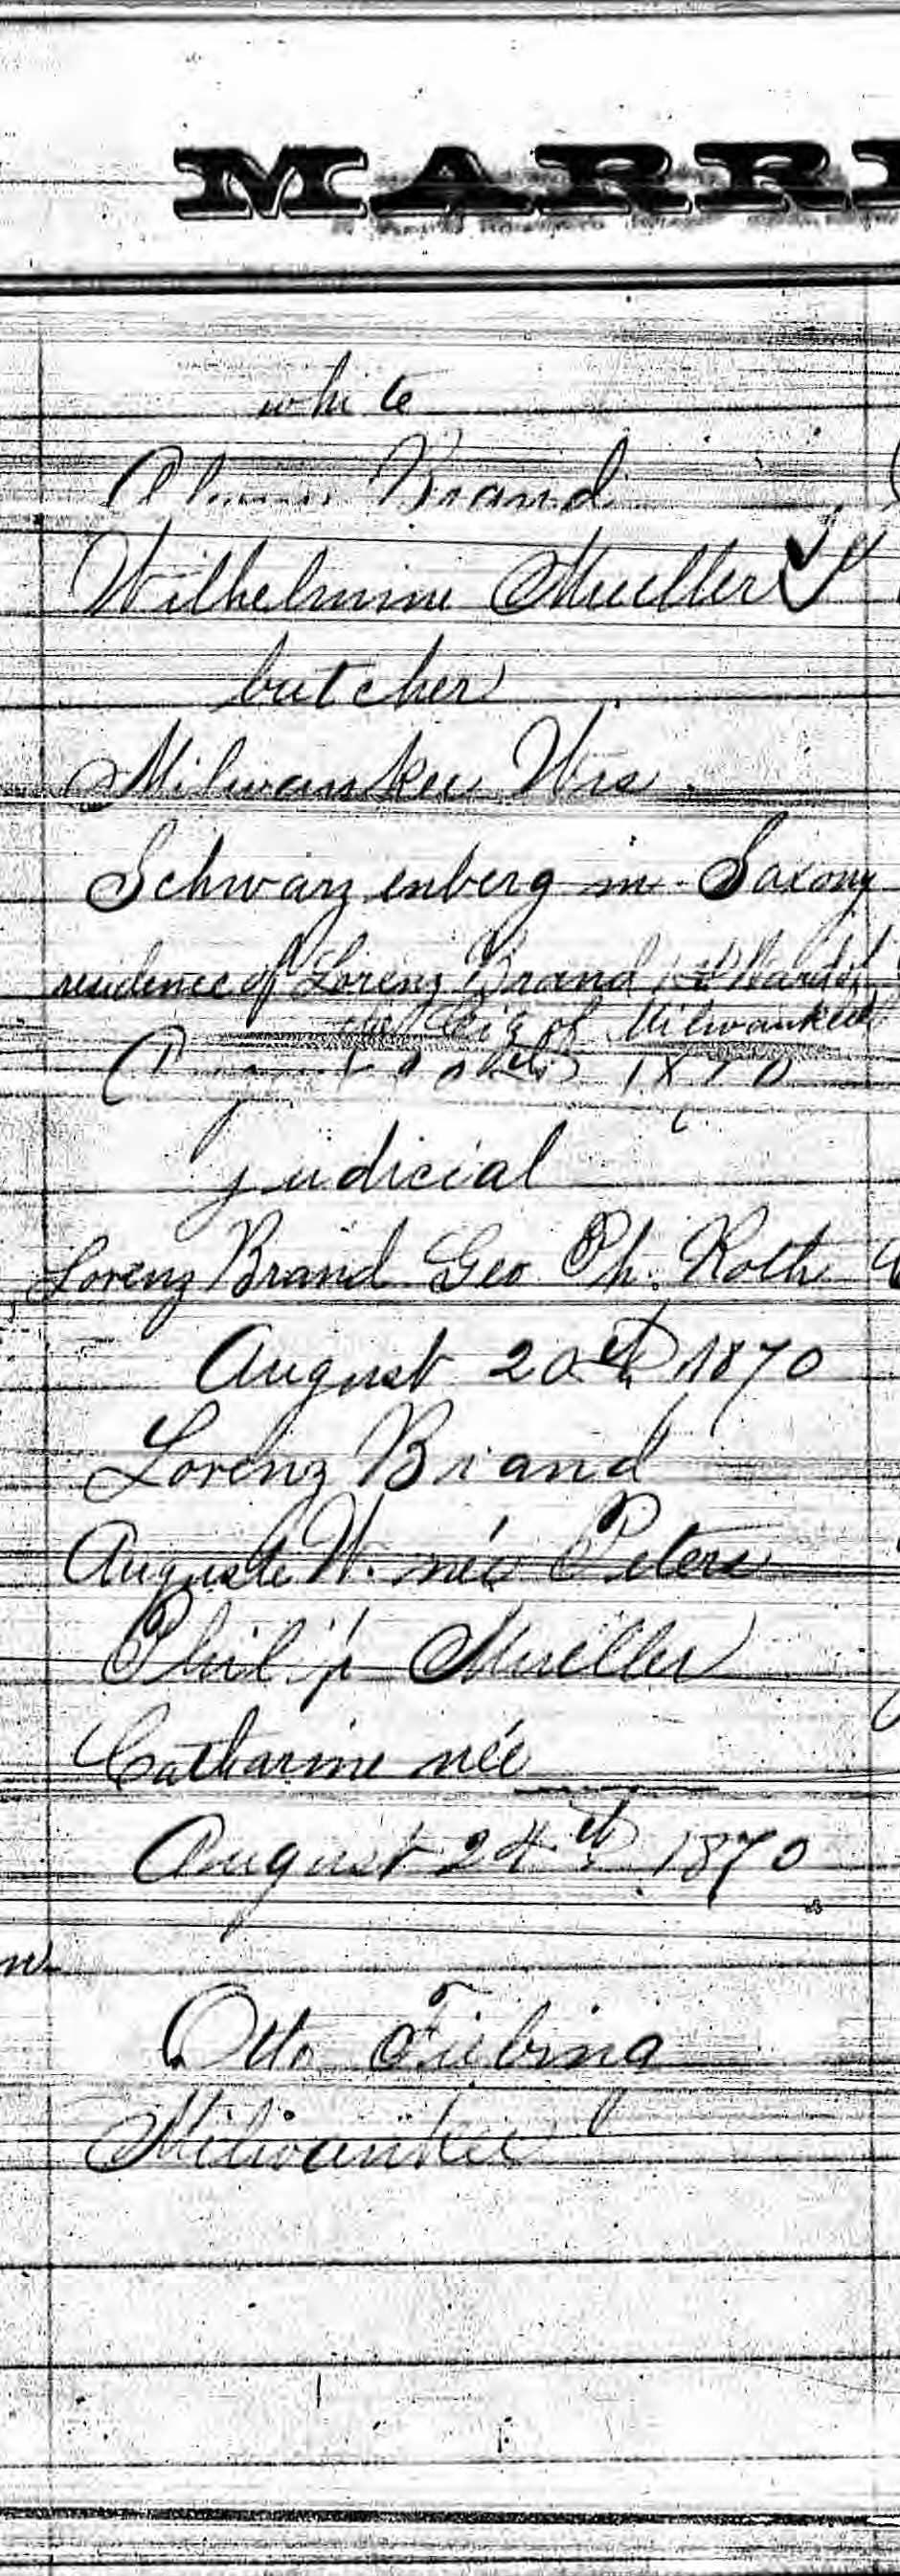 MARRI
white
Brand
Wilhelmine Mueller
butcher
Milwaukee Wis
Schwarzenberg in Saxony
residence of Lorenz Brand 1st Ward of
the City of Milwaukee
August 1870
judicial
Lorenz Brand Geo Ph. Roth
August 20th 1870
Lorenz Brand
Auguste W. née Peters
Philip Mueller
Catharine née
August 24th 1870
Otto Fiebing
Milwaukee